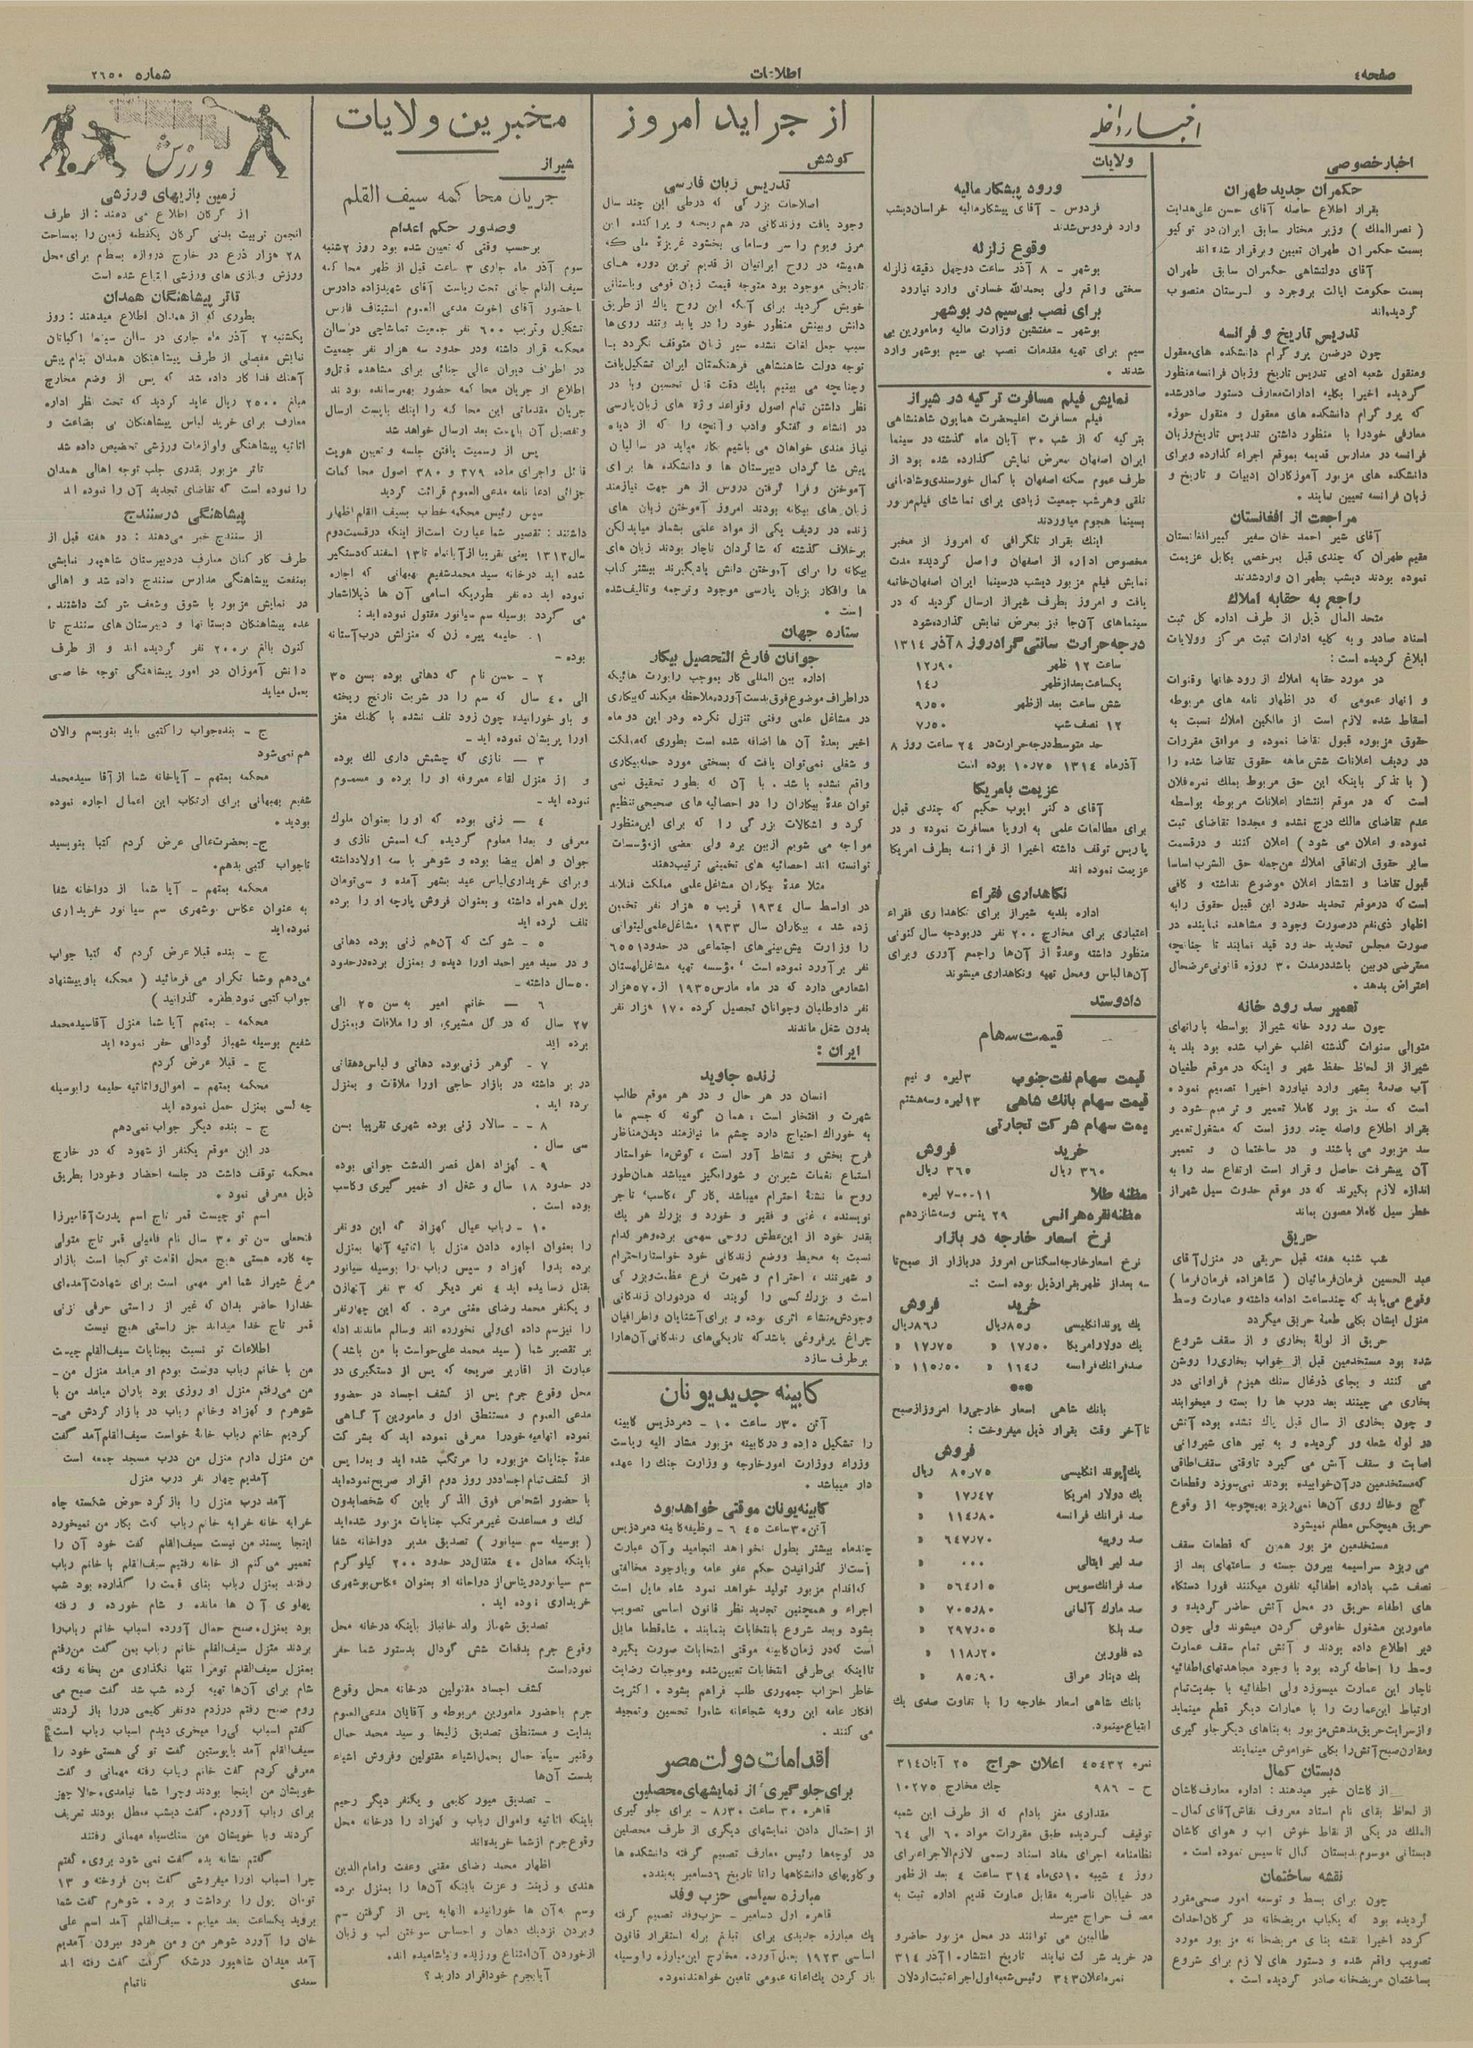 صفحه ٤
اطلاعات
شماره ٢٦٥٠
اخبار داخله
اخبار خصوصی
حکمران جدید طهران
بقرار اطلاع حاصله آقای حسن علی هدایت
( نصرالملک ) وزیر مختار سابق ایران در توکیو
بسمت حکمران طهران تعیین و برقرار شده اند
آقای دولتشاهی حکمران سابق طهران
بسمت حکومت ایالت بروجرد و لرستان منصوب
گردیده اند
تدریس تاریخ و فرانسه
چون در ضمن پروگرام دانشکده های معقول
ومنقول شعبه ادبی تدریس تاریخ وزبان فرانسه منظور
گردیده اخیرا بکلیه ادارات معارف دستور صادر شده
که پروگرام دانشکده های معقول و منقول حوزه
معارفی خودرا با منظور داشتن تدریس تاریخ وزبان
فرانسه در مدارس قدیمه بموقع اجراء گذارده وبرای
دانشکده های مزبور آموزکاران ادبیات و تاریخ و
زبان فرانسه تعیین نمایند .
مراجعت از افغانستان
آقای شیر احمد خان سفیر کبیر افغانستان
مقیم طهران که چندی قبل بمرخصی بکابل عزیمت
نموده بودند دیشب بطهران وارد شدند
راجع به حقابه املاک
متحد المال ذیل از طرف اداره کل ثبت
اسناد صادر و به کلیه ادارات ثبت مرکز وولایات
ابلاغ گردیده است :
در مورد حقابه املاک از رودخانها وقنوات
و انهار عمومی که در اظهار نامه های مربوطه
اسقاط شده لازم است از مالکین املاک نسبت به
حقوق مزبوره قبول تقاضا نموده و موافق مقررات
در ردیف اعلانات شش ماهه حقوق تقاضا شده را
( با تذکر باینکه این حق مربوط بملک نمره فلان
است که در موقع انتشار اعلانات مربوطه بواسطه
عدم تقاضای مالک درج نشده و مجددا تقاضای ثبت
نموده و اعلان می شود ) اعلان کنند و درقسمت
سایر حقوق ارتفاقی املاک من جمله حق الشرب اساسا
قبول تقاضا و انتشار اعلان موضوع نداشته و کافی
است که درموقع تحدید حدود این قبیل حقوق را به
اظهار ذی نفع درصورت وجود و مشاهده نماینده در
صورت مجلس تحدید حدود قید نمایند تا چنانچه
معترضی در بین باشد در مدت ٣٠ روزه قانونی عرضحال
اعتراض بدهد .
تعمیر سد رود خانه
چون سد رود خانه شیراز بواسطه بارانهای
متوالی سنوات گذشته اغلب خراب شده بود بلدیه
شیراز از لحاظ حفظ شهر و اینکه در موقع طغیان
آب صدمه بشهر وارد نیاورد اخیرا تصمیم نموده
است که سد مزبور کاملا تعمیر و ترمیم شود و
بقرار اطلاع واصله چند روز است که مشغول تعمیر
سد مزبور می باشند و در ساختمان و تعمیر
آن پیشرفت حاصل و قرار است ارتفاع سد را به
اندازه لازم بگیرند که در موقع حدوث سیل شهراز
خطر سیل کاملا مصون بماند
حریق
شب شنبه هفته قبل حریقی در منزل آقای
عبد الحسین فرمانفرمائیان ( شاهزاده فرمانفرما )
وقوع می یابد که چند ساعت ادامه داشته و عمارت وسط
منزل ایشان بکلی طعمهٔ حریق میگردد
حریق از لولهٔ بخاری و از سقف شروع
شده بود مستخدمین قبل از خواب بخاری را روشن
می کنند و بجای ذرغال سنک هیزم فراوانی در
بخاری می چینند بعد درب ها را بسته و میخوابند
و چون بخاری از سال قبل پاک نشده بوده آتش
در لوله شعله ور گردیده و به تیر های شیروانی
اصابت و سقف آتش می گیرد تاوقتی سقف اطاقی
که مستخدمین در آن خوابیده بودند نمی سوزد و قطعات
گچ و خاک روی آن ها نمی ریزد بهیچوجه از وقوع
حریق هیچکس مطلع نمیشود
مستخدمین مز بور همین که قطعات سقف
می ریزد سراسیمه بیرون جسته و ساعتهای بعد از
نصف شب باداره اطفائیه تلفون میکنند فورا دستگاه
های اطفاء حریق در محل آتش حاضر گردیده و
مامورین مشغول خاموش کردن میشوند ولی چون
دیر اطلاع داده بودند و آتش تمام سقف عمارت
وسط را احاطه کرده بود با وجود مجاهدتهای اطفائیه
ناچار این عمارت میسوزد ولی اطفائیه با جدیت تمام
ارتباط این عمارت را با عمارات دیگر قطع مینماید
و از سرایت حریق مدهش مزبور به بناهای دیگر جلوگیری
و مقارن صبح آتش را بکلی خواموش مینمایند
دبستان کمال
از کاشان خبر میدهند : اداره معارف کاشان
از لحاظ بقای نام استاد معروف نقاش آقای کمال-
الملک در یکی از نقاط خوش آب و هوای کاشان
دبستانی موسوم بدبستان کمال تاسیس نموده است .
نقشه ساختمان
چون برای بسط و توسعه امور صحی مقرر
گردیده بود که یکباب مریضخانه در گرگان احداث
گردد اخیرا نقشه بنای مریضخانه مزبور مورد
تصویب واقع شده و دستور های لازم برای شروع
بساختمان مریضخانه صادر گردیده است .
ولایات
ورود پیشکار مالیه
فردوس - آقای پیشکار مالیه خراسان دیشب
وارد فردوس شدند
وقوع زلزله
بوشهر - ٨ آذر ساعت دوچهل دقیقه زلزله
سختی واقع ولی بحمدالله خسارتی وارد نیاورد
برای نصب بی سیم در بوشهر
بوشهر - مفتشین وزارت مالیه ومامورین بی
سیم برای تهیه مقدمات نصب بی سیم بوشهر وارد
شدند .
نمایش فیلم مسافرت ترکیه در شیراز
فیلم مسافرت اعلیحضرت همایون شاهنشاهی
بترکیه که از شب ٣٠ آبان ماه گذشته در سینما
ایران اصفهان معرض نمایش گذارده شده بود از
طرف عموم سکنه اصفهان با کمال خورسندی و شادمانی
تلقی وهرشب جمعیت زیادی برای تماشای فیلم مزبور
بسینما هجوم میاوردند
اینک بقرار تلگرافی که امروز از مخبر
مخصوص اداره از اصفهان واصل گردیده مدت
نمایش فیلم مزبور دیشب درسینما ایران اصفهان خاتمه
یافت و امروز بطرف شیراز ارسال گردید که در
سینماهای آن جا نیز بمعرض نمایش گذارده شود
درجه حرارت سانتی گراد روز ٨ آذر ١٣١٤
ساعت ١٢ ظهر ١٢٫٩٠
یکساعت بعدازظهر ١٤٫
شش ساعت بعد ازظهر ٩٫٥٠
١٢ نصف شب ٧٫٥٠
حد متوسط درجه حرارت در ٢٤ ساعت روز ٨
آذرماه ١٣١٤ ١٠٫٧٥ بوده است
عزیمت بامریکا
آقای دکتر ایوب حکیم که چندی قبل
برای مطالعات علمی به اروپا مسافرت نموده و در
پاریس توقف داشته اخیرا از فرانسه بطرف امریکا
عزیمت نموده اند
نگاهداری فقراء
اداره بلدیه شیراز برای نگاهداری فقراء
اعتباری برای مخارج ٢٠٠ نفر دربودجه سال کنونی
منظور داشته وعدهٔ از آن ها راجمع آوری وبرای
آن ها لباس ومحل تهیه ونگاهداری میشوند
دادوستد
قیمت سهام
قیمت سهام نفت جنوب ٣ لیره و نیم
قیمت سهام بانک شاهی ١٣ لیره وسه هشتم
یمت سهام شرکت تجارتی
خرید فروش
٣٦٠ ریال ٣٦٥ ریال
مظنه طلا ١١-٠-٧ لیره
مظنه نقره هر انس ٢٩ پنس وسه شانزدهم
نرخ اسعار خارجه در بازار
نرخ اسعار خارجه اسکناس امروز در بازار از صبح تا
سه بعد از ظهر بقرار ذیل بوده است :ـ
خرید فروش
یک پوند انگلیسی ٨٥٫ ریال ٨٦٫ ریال
یک دولار امریکا ١٧٫٥٠ « ١٧٫٧٥ «
صد فرانک فرانسه ١١٤٫ « ١١٥٫٠٠ «
٠٠٠
بانک شاهی اسعار خارجی را امروز از صبح
تا آخر وقت بقرار ذیل میفروخت :
فروش
یک پوند انگلیسی ٨٠٫٧٥ ریال
یک دولار امریکا ١٧٫٤٧ «
صد فرانک فرانسه ١١٤٫٨٠ «
صد روپیه ٦٤٧٫٧٠ «
صد لیر ایتالی ٠٠٠ «
صد فرانک سویس «
صد مارک آلمانی ٧٠٥٫٨٠ «
صد بلگا ٢٩٧٫٠٥ «
ده فلورین ١١٨٫٢٠ «
یک دینار عراق ٨٥٫٩٠ «
بانک شاهی اسعار خارجه را با تفاوت صدی یک
ابتیاع مینمود.
نمره ٤٥٤٣٢ اعلان حراج ٢٥ آبان ٣١٤
ح - ٩٨٦ چک مخارج ١٠٢٧٥
مقداری مغز بادام که از طرف این شعبه
توقیف گردیده طبق مقررات مواد ٦٠ الی ٦٤
نظامنامه اجرای مفاد اسناد رسمی لازم الاجراء برای
روز ٤ شنبه ١٠ دی ماه ٣١٤ ساعت ٤ بعد از ظهر
در خیابان ناصریه مقابل عمارت قدیم اداره ثبت به
مصرف حراج میرسد
طالبین می توانند در محل مزبور حاضرو
در خرید شرکت نمایند تاریخ انتشار ١ آذر ٣١٤
نمره اعلان ٣٤٣ رئیس شعبه اول اجراء ثبت اردلان
از جراید امروز
کوشش
تدریس زبان فارسی
اصلاحات بزرگی که درطی این چند سال
وجود یافت وزندگانی در هم ریخته و پراکنده این
مرز وبوم را سر وسامانی بخشود غریزهٔ ملی که
همیشه در روح ایرانیان از قدیم ترین دوره های
تاریخی موجود بود متوجه قیمت زبان قومی وباستانی
خویش گردید برای آنکه این روح پاک از طریق
دانش وبینش منظور خود را در یابد وتند روی ها
سبب جعل لغات نشده سیر زبان متوقف نگردد بنا
توجه دولت شاهنشاهی فرهنگستان ایران تشکیل یافت
وچنانچه می بینیم بایک دقت قابل تحسین وبا در
نظر داشتن تمام اصول وقواعد واژه های زبان پارسی
در انشاء و گفتگو وادب وآنچه را که از دیده
نیاز مندی خواهان می باشیم بکار میابد در سالیان
پیش شاگردان دبیرستان ها و دانشکده ها برای
آموختن وفرا گرفتن دروس از هر جهت نیازمند
زبان های بیگانه بودند امروز آموختن زبان های
زنده در ردیف یکی از مواد علمی بشمار میاید لکن
برخلاف گذشته که شاگردان ناچار بودند زبان های
بیگانه را برای آموختن دانش یادبگیرند بیشتر کتاب
ها وافکار بزبان پارسی موجود وترجمه وتالیف شده
است .
ستاره جهان
جوانان فارغ التحصیل بیکار
اداره بین المللی کار بموجب راپورت هائیکه
در اطراف موضوع فوق بدست آورده، ملاحظه میکند که بیکاری
در مشاغل علمی وفنی تنزل نکرده ودر این دو ماه
اخیر بعدهٔ آن ها اضافه شده است بطوری که مملکت
و شغلی نمی توان یافت که بسختی مورد حمله بیکاری
واقع نشده باشد . با آن که بطور تحقیق نمی
توان عدهٔ بیکاران را در احصائیه های صحیحی تنظیم
کرد و اشکالات بزرگی را که برای این منظور
مواجه می شویم ازبین برد ولی بعضی از مؤسسات
توانسته اند احصائیه های تخمینی ترتیب دهند
مثلا عدهٔ بیکاران مشاغل علمی مملکت فنلاند
در اواسط سال ١٩٣٤ قریب ٥ هزار نفر تخمین
زده شد ، بیکاران سال ١٩٣٣ مشاغل علمی لیتوانی
را وزارت پیش بینی های اجتماعی در حدود ٦٥٥١
نفر برآورد نموده است ، مؤسسه تهیه مشاغل لهستان
اشعار می دارد که در ماه مارس ١٩٣٥ از ٥٧٠ هزار
نفر داوطلبان وجوانان تحصیل کرده ١٧٠ هزار نفر
بدون شغل ماندند
ایران :
زنده جاوید
انسان در هر حال و در هر موقع طالب
شهرت و افتخار است ، همان گونه که جسم ما
به خوراک احتیاج دارد چشم ما نیازمند دیدن مناظر
فرح بخش و نشاط آور است ، گوش ما خواستار
استماع نغمات شیرین و شورانگیز میباشد همان طور
روح ما تشنهٔ احترام میباشد کارگر ، کاسب ، تاجر
نویسنده ، غنی و فقیر و خورد و بزرگ هر یک
بقدر خود از این عطش روحی سهمی برده وهر کدام
نسبت به محیط ووضع زندگانی خود خواستار احترام
و شهرتند ، احترام و شهرت فرع عظمت وبزرگی
است و بزرگ کسی را گویند که دردوران زندگانی
وجودش منشاء اثری بوده و برای آشنایان واطرافیان
چراغ پرفروغی باشد که تاریکی های زندگانی آن ها را
برطرف سازد
کابینه جدید یونان
آتن ٣٠٫ ساعت ١٠ - دمردزیس کابینه
را تشکیل داده و در کابینه مزبور مشار الیه ریاست
وزراء ووزارت امور خارجه و وزارت جنک را عهده
دار میباشد .
کابینه یونان موقتی خواهد بود
آتن ٣٠ ساعت ٤٥ ٦ - وظیفه کابینه دمردزیس
چندماه بیشتر بطول نخواهد انجامید وآن عبارت
است از گذرانیدن حکم عفو عامه وباوجود مخالفتی
که اقدام مزبور تولید خواهد نمود شاه مایل است
اجراء و همچنین تجدید نظر قانون اساسی تصویب
بشود وبعد شروع بانتخابات بنمایند . شاه قطعا مایل
است که در زمان کابینه موقتی انتخابات صورت بگیرد
تا اینکه بی طرفی انتخابات تعیین شده وموجبات رضایت
خاطر احزاب جمهوری طلب فراهم بشود . اکثریت
افکار عامه این رویه شجاعانه شاه را تحسین وتمجید
می کنند .
اقدامات دولت مصر
برای جلوگیری از نمایشهای محصلین
قاهره ٣٠ ساعت ٨٫٣٠ - برای جلوگیری
از احتمال دادن نمایشهای دیگری از طرف محصلین
در کوچه ها رئیس معارف تصمیم گرفته دانشکده ها
و کلوپهای دانشگاهها را تا تاریخ ٦ دسامبر به بندند.
مبارزه سیاسی حزب وفد
قاهره اول دسامبر - حزب وفد تصمیم گرفته
یک مبارزه جدیدی برای تبلیغ برله استقرار قانون
اساسی ١٩٢٣ بعمل آورد. مخارج این مبارزه را وسیله
باز کردن یک اعانه عمومی تامین خواهند نمود.
مخبرین ولایات
شیراز
جریان محاکمه سیف القلم
وصدور حکم اعدام
برحسب وقتی که تعیین شده بود روز ٢ شنبه
سوم آذر ماه جاری ٣ ساعت قبل از ظهر محاکمه
سیف القلم جانی تحت ریاست آقای شهیدزاده دادرس
باحضور آقای اخوت مدعی العموم استیناف فارس
تشکیل وقریب ٦٠٠ نفر جمعیت تماشاچی در سالن
محکمه قرار داشته ودر حدود سه هزار نفر جمعیت
در اطراف دیوان عالی جنائی برای مشاهده قاتل و
اطلاع از جریان محاکمه حضور بهمرسانده بودند
جریان مقدماتی این محاکمه را اینک بایست ارسال
وتفصیل آن بایست بعد ارسال خواهد شد
پس از رسمیت یافتن جلسه و تعیین هویت
قاتل واجرای ماده ٣٧٩ و ٣٨٠ اصول محاکمات
جزائی ادعا نامه مدعی العموم قرائت گردید
سپس رئیس محکمه خطاب بسیف القلم اظهار
داشتند : تقصیر شما عبارت است از اینکه درقسمت دوم
سال ١٣١٣ یعنی تقریبا از آبانماه تا ١٣ اسفند که دستگیر
شده اید در خانه سید محمد شفیع بهبهانی که اجاره
نموده اید ده نفر بطوریکه اسامی آن ها ذیلا اشعار
می گردد بوسیله سم سیانور مقتول نموده اید :
١٠ حلیمه پیره زن که منزلش درب آستانه
بوده -
٢ - حسن نام که دهاتی بوده بسن ٣٥
الی ٤٠ سال که سم را در شربت نارنج ریخته
و باو خورانیده چون زود تلف نشده با کلنک مغز
اورا پریشان نموده اید -
٣ - نازی که چشمش داری لک بوده
و از منزل لقاء معروفه او را برده و مسموم
نموده اید -
٤ - زنی بوده که او را بعنوان ملوک
معرفی و بعدا معلوم گردیده که اسمش نازی و
جوان و اهل بیضا بوده و شوهر با سه اولاد داشته
و برای خریداری لباس عید بشهر آمده و سی تومان
پول همراه داشته و بعنوان فروش پارچه او را برده
تلف کرده اید
٥ - شوکت که آن هم زنی بوده دهاتی
و در سید میر احمد اورا دیده و بمنزل برده در حدود
٥٠ سال داشته -
٦ - خانم امیر به سن ٢٥ الی
٢٧ سال که در گل مشیری او را ملاقات وبمنزل
برده اید
٧ - گوهر زنی بوده دهاتی و لباس دهقانی
در بر داشته در بازار حاجی اورا ملاقات و بمنزل
برده اید .
٨ - - سالار زنی بوده شهری تقریبا بسن
سی سال .
٩ - گهزاد اهل قصر الدشت جوانی بوده
در حدود ١٨ سال و شغل او خمیر گیری وکاسب
بوده است .
١٠ - رباب عیال گهزاد که این دونفر
را بعنوان اجاره دادن منزل با اثاثیه آنها بمنزل
برده بدوا گهزاد و سپس رباب را بوسیله سیانور
بقتل رسانیده اید ٤ نفر دیگر که ٣ نفر آنها زن
و یکنفر محمد رضای مقنی مرد . که این چهارنفر
را نیز سم داده ای ولی نخورده اند وسالم ماندند ادله
بر تقصیر شما ( سید محمد علی حواست با من باشد )
عبارت از اقاریر صریحه که پس از دستگیری در
محل وقوع جرم پس از کشف اجساد در حضور
مدعی العموم و مستنطق اول و مامورین آگاهی
نموده اتهامیه خودرا معرفی نموده اید که بشرکت
عدهٔ جنایات مزبوره را مرتکب شده اید و بعد از پس
از کشف تمام اجساد در روز دوم اقرار صریح نموده اید
با حضور اشخاص فوق الذکر باین که شخصا بدون
کمک و مساعدت غیر مرتکب جنایات مزبور شده اید
( بوسیله سم سیانور ) تصدیق مدیر دواخانه شفا
باینکه معادل ٤٠ مثقال در حدود ٢٠٠ کیلوگرم
سم سیانور دوپتاس از دواخانه او بعنوان عکاس بوشهری
خریداری نموده اید .
تصدیق شهباز ولد خانباز باینکه درخانه محل
وقوع جرم بدفعات شش گودال بدستور شما حفر
نموده است
کشف اجساد مقتولین درخانه محل وقوع
جرم باحضور مامورین مربوطه و آقایان مدعی العموم
بدایت و مستنطق تصدیق زلیخا و سید محمد حمال
وقنبر سیاه حمال بحمل اشیاء مقتولین وفروش اشیاء
بدست آن ها
- تصدیق میور کلیمی و یکنفر دیگر رحیم
باینکه اثاثیه واموال رباب و گهزاد را درخانه محل
وقوع جرم ازشما خریده اند
اظهار محمد رضای مقنی وعفت وامام الدین
هندی و زینت و عزت باینکه آن ها را بمنزل برده
وسم به آن ها خورانیده الهایه پس از گرفتن سم
وبردن نزدیک دهان و احساس سوختن لب و زبان
ازخوردن آن امتناع ورزیده ونیاشامیده اند.
آیا بجرم خود اقرار دارید ؟
ورزش
زمین بازیهای ورزشی
از گرگان اطلاع می دهند : از طرف
انجمن تربیت بدنی گرگان یکقطعه زمین را بمساحت
٢٨ هزار ذرع در خارج دروازه بسطام برای محل
ورزش و بازی های ورزشی ابتیاع شده است
تآتر پیشاهنگان همدان
بطوری که از همدان اطلاع میدهند : روز
یکشنبه ٢ آذر ماه جاری در سالن سینما اکباتان
نمایش مفصلی از طرف پیشاهنگان همدان بنام پیش
آهنک فداکار داده شد که پس از وضع مخارج
مبلغ ٢٥٠٠ ریال عاید گردید که تحت نظر اداره
معارف برای خرید لباس پیشاهنگان بی بضاعت و
اثاثیه پیشاهنگی ولوازمات ورزشی تخصیص داده شد
تاتر مزبور بقدری جلب توجه اهالی همدان
را نموده است که تقاضای تجدید آن را نموده اند
پیشاهنگی در سنندج
از سنندج خبر می دهند : دو هفته قبل از
طرف کارکنان معارف در دبیرستان شاهپور نمایشی
بمنفعت پیشاهنگی مدارس سنندج داده شد و اهالی
در نمایش مزبور با شوق وشعف شرکت داشتند .
عده پیشاهنگان دبستانها و دبیرستان های سنندج تا
کنون بالغ بر ٢٠٠ نفر گردیده اند و از طرف
دانش آموزان در امور پیشاهنگی توجه خاصی
بعمل میاید
ج - بنده جواب را کتبی باید بنویسم والان
هم نمی شود
محکمه بمتهم - آیا خانه شما از آقا سید محمد
شفیع بهبهانی برای ارتکاب این اعمال اجاره نموده
بودید .
ج - بحضرت عالی عرض کردم کتبا بنویسید
تاجواب کتبی بدهم.
محکمه بمتهم - آیا شما از دواخانه شفا
به عنوان عکاس بوشهری سم سیانور خریداری
نموده اید
ج - بنده قبلا عرض کردم که کتبا جواب
می دهم وشما تکرار می فرمائید ( محکمه باو پیشنهاد
جواب کتبی نمود طفره گذرانید )
محکمه - بمتهم آیا شما منزل آقا سید محمد
شفیع بوسیله شهباز گودالی حفر نموده اید
ج - قبلا عرض کردم
محکمه بمتهم - اموال واثاثیه حلیمه را بوسیله
چه کسی بمنزل حمل نموده اید
ج - بنده دیگر جواب نمی دهم
در این موقع یکنفر از شهود که در خارج
محکمه توقف داشت در جلسه احضار وخودرا بطریق
ذیل معرفی نمود .
اسم تو چیست قمر تاج اسم پدرت آقا میرزا
فتحعلی سن تو ٣٠ سال نام فامیلی قمر تاج متولی
چه کاره هستی هیچ محل اقامت تو کجا است بازار
مرغ شیراز شما امر مهمی است برای شهادت آمده ای
خدارا حاضر بدان که غیر از راستی حرفی نزنی
قمر تاج خدا میداند جز راستی هیچ نیست
اطلاعات تو نسبت بجنایات سیف القلم چیست
من با خانم رباب دوست بودم او میامد منزل من -
من می رفتم منزل او روزی بود باران میامد من با
شوهرم و گهزاد وخانم رباب در بازار گردش می -
کردیم خانم رباب خانهٔ خواست سیف القلم آمد گفت
من منزل دارم منزل من درب مسجد جمعه است
آمدیم چهار نفر درب منزل
آمد درب منزل را باز کرد حوض شکسته چاه
خرابه خانه خرابه خانم رباب گفت بکار من نمیخورد
اینجا پسند من نیست سیف القلم گفت خود آن را
تعمیر می کنم از خانه رفتیم سیف القلم با خانم رباب
رفتند بمنزل رباب بنای قیمت را گذارده بود شب
پهلوی آن ها مانده و شام خورده و رفته
بود بمنزل. صبح حمال آورده اسباب خانم رباب را
بردند منزل سیف القلم خانم رباب بمن گفت من رفتم
بمنزل سیف القلم تومرا تنها نگذاری من بخانه رفته
شام برای آن ها تهیه کرده شب شد گفت صبح می
روم صبح رفتم درزدم دونفر کلیمی دررا باز کردند
گفتم اسباب کی را میخری دیدم اسباب رباب است
سیف القلم آمد باپوستین گفت تو کی هستی خود را
معرفی کردم گفت خانم رباب رفته مهمانی و گفت
خویشان من اینجا بودند وچرا شما نیامدی. حالا جهز
برای رباب آوردم. گفت دیشب معطل بودند تعریف
کردند وبا خویشان من سنک سیاه مهمانی رفتند
گفتم نشانه بده گفت نمی شود بروی. گفتم
چرا اسباب اورا میفروشی گفت بمن فروخته و ١٣
تومان پول را برداشت و برد . شوهرم گفت شما
بروید یکساعت بعد میایم . سیف القلم آمد اسم علی
خان را آورد شوهر من و من هر دو بیرون آمدیم
آمد میدان شاهپور درشکه گرفت گفت رفته اند
سعدی ناتمام